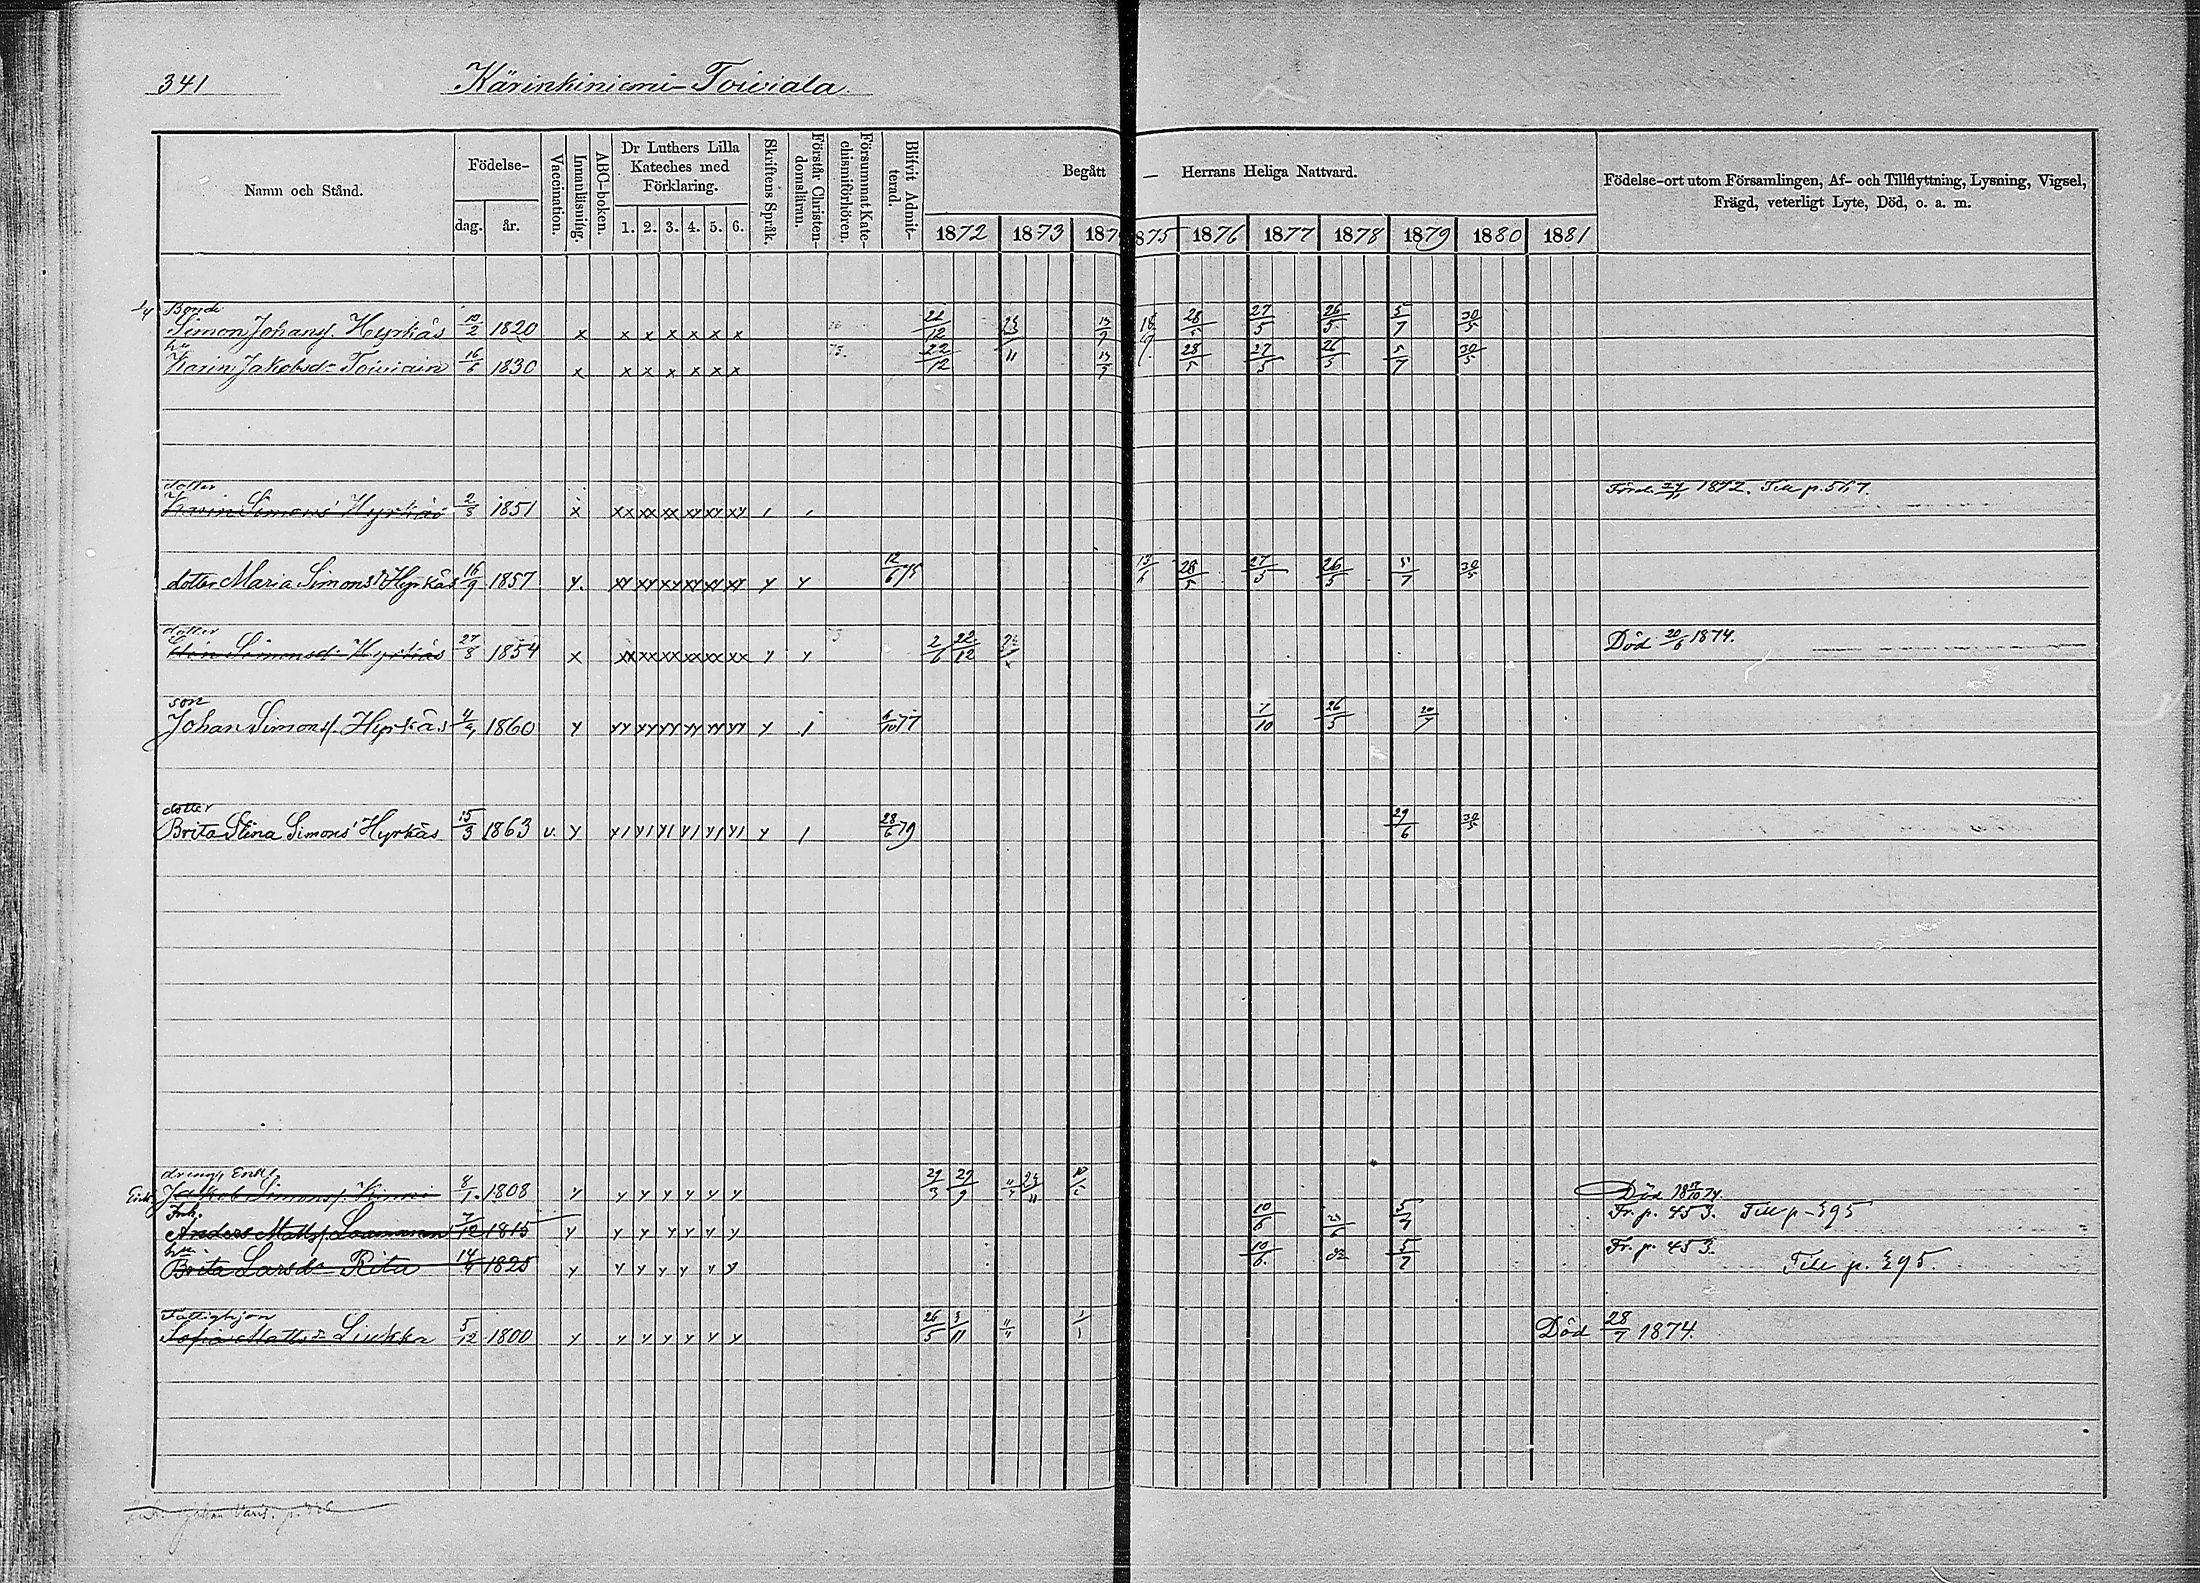 341 Kärinkiniemi-Toiviala
Namn och Stånd.
Födelse-
dag. år.
Vaccination.
Innanläsning.
ABC-boken.
Dr Luthers Lilla
Kateches med
Förklaring.
1. 2. 3. 4. 5. 6.
Skriftens Språk.
Förstår Christen-
domsläran.
Försummat Kate-
chismiförhören.
Blifvit Admit-
terad.
Begått — Herrans Heliga Nattvard.
1872 1873 187 875 1876 1877 1878 1879 1880 1881
Födelse-ort utom Församlingen, Af- och Tillflyttning, Lysning, Vigsel,
Frägd, veterligt Lyte, Död, o. a. m.
Bonde
Simon Johans. Hyrkäs 1820 x x x x x x x 28/5 27/5 26/5 5/7 30/5
hu
Karin Jakobsdr Toiviain 16/6 1830 x x x x x x x 22/12 11 28/5 27/5 26/5 5/7 30/5
dotter
Karin Simons Hyrkäs 1851 x xx xx xx xx xx xx 1872. Till p. 567.
dotter Maria Simonsd Hyrkäs 16/9 1857 y. xy xy xy xy xy xy y y 12/6 75 28/5 27/5 26/5 5/7 30/5
dotter
Simonsd. Hyrkäs 27/8 1854 x xx xx xx xx xx xx y y 2/6 22/12 Död 20/6 1874.
son
Johan Simons. Hyrkäs 1860 y yy yy yy yy yy yy y 1 77 7/10 26/5
dotter
Brita Stina Simons Hyrkäs 15/3 1863 v. y y1 y1 y1 y1 y1 y1 y 1 28/6 79 29/6 30/5
dreng, Enkl.
Jakob Simons. Kinni 8/1. 1808 y y y y y y y 29/3 29/9 Död
Anders Matts. Saamanen 7/12 1815 y y y y y y y 10/6 5/7 Fr. p. 453. Till p. 395
hu
Brita Larsdr Rita 1825 y y y y y y y 10/6. 5/7 Fr. p. 453. Till p. 395.
Fattighjon
Sofia Mattsdr Liukka 5/12 1800 y y y y y y y 26/5 3/11 Död 28/7 1874.